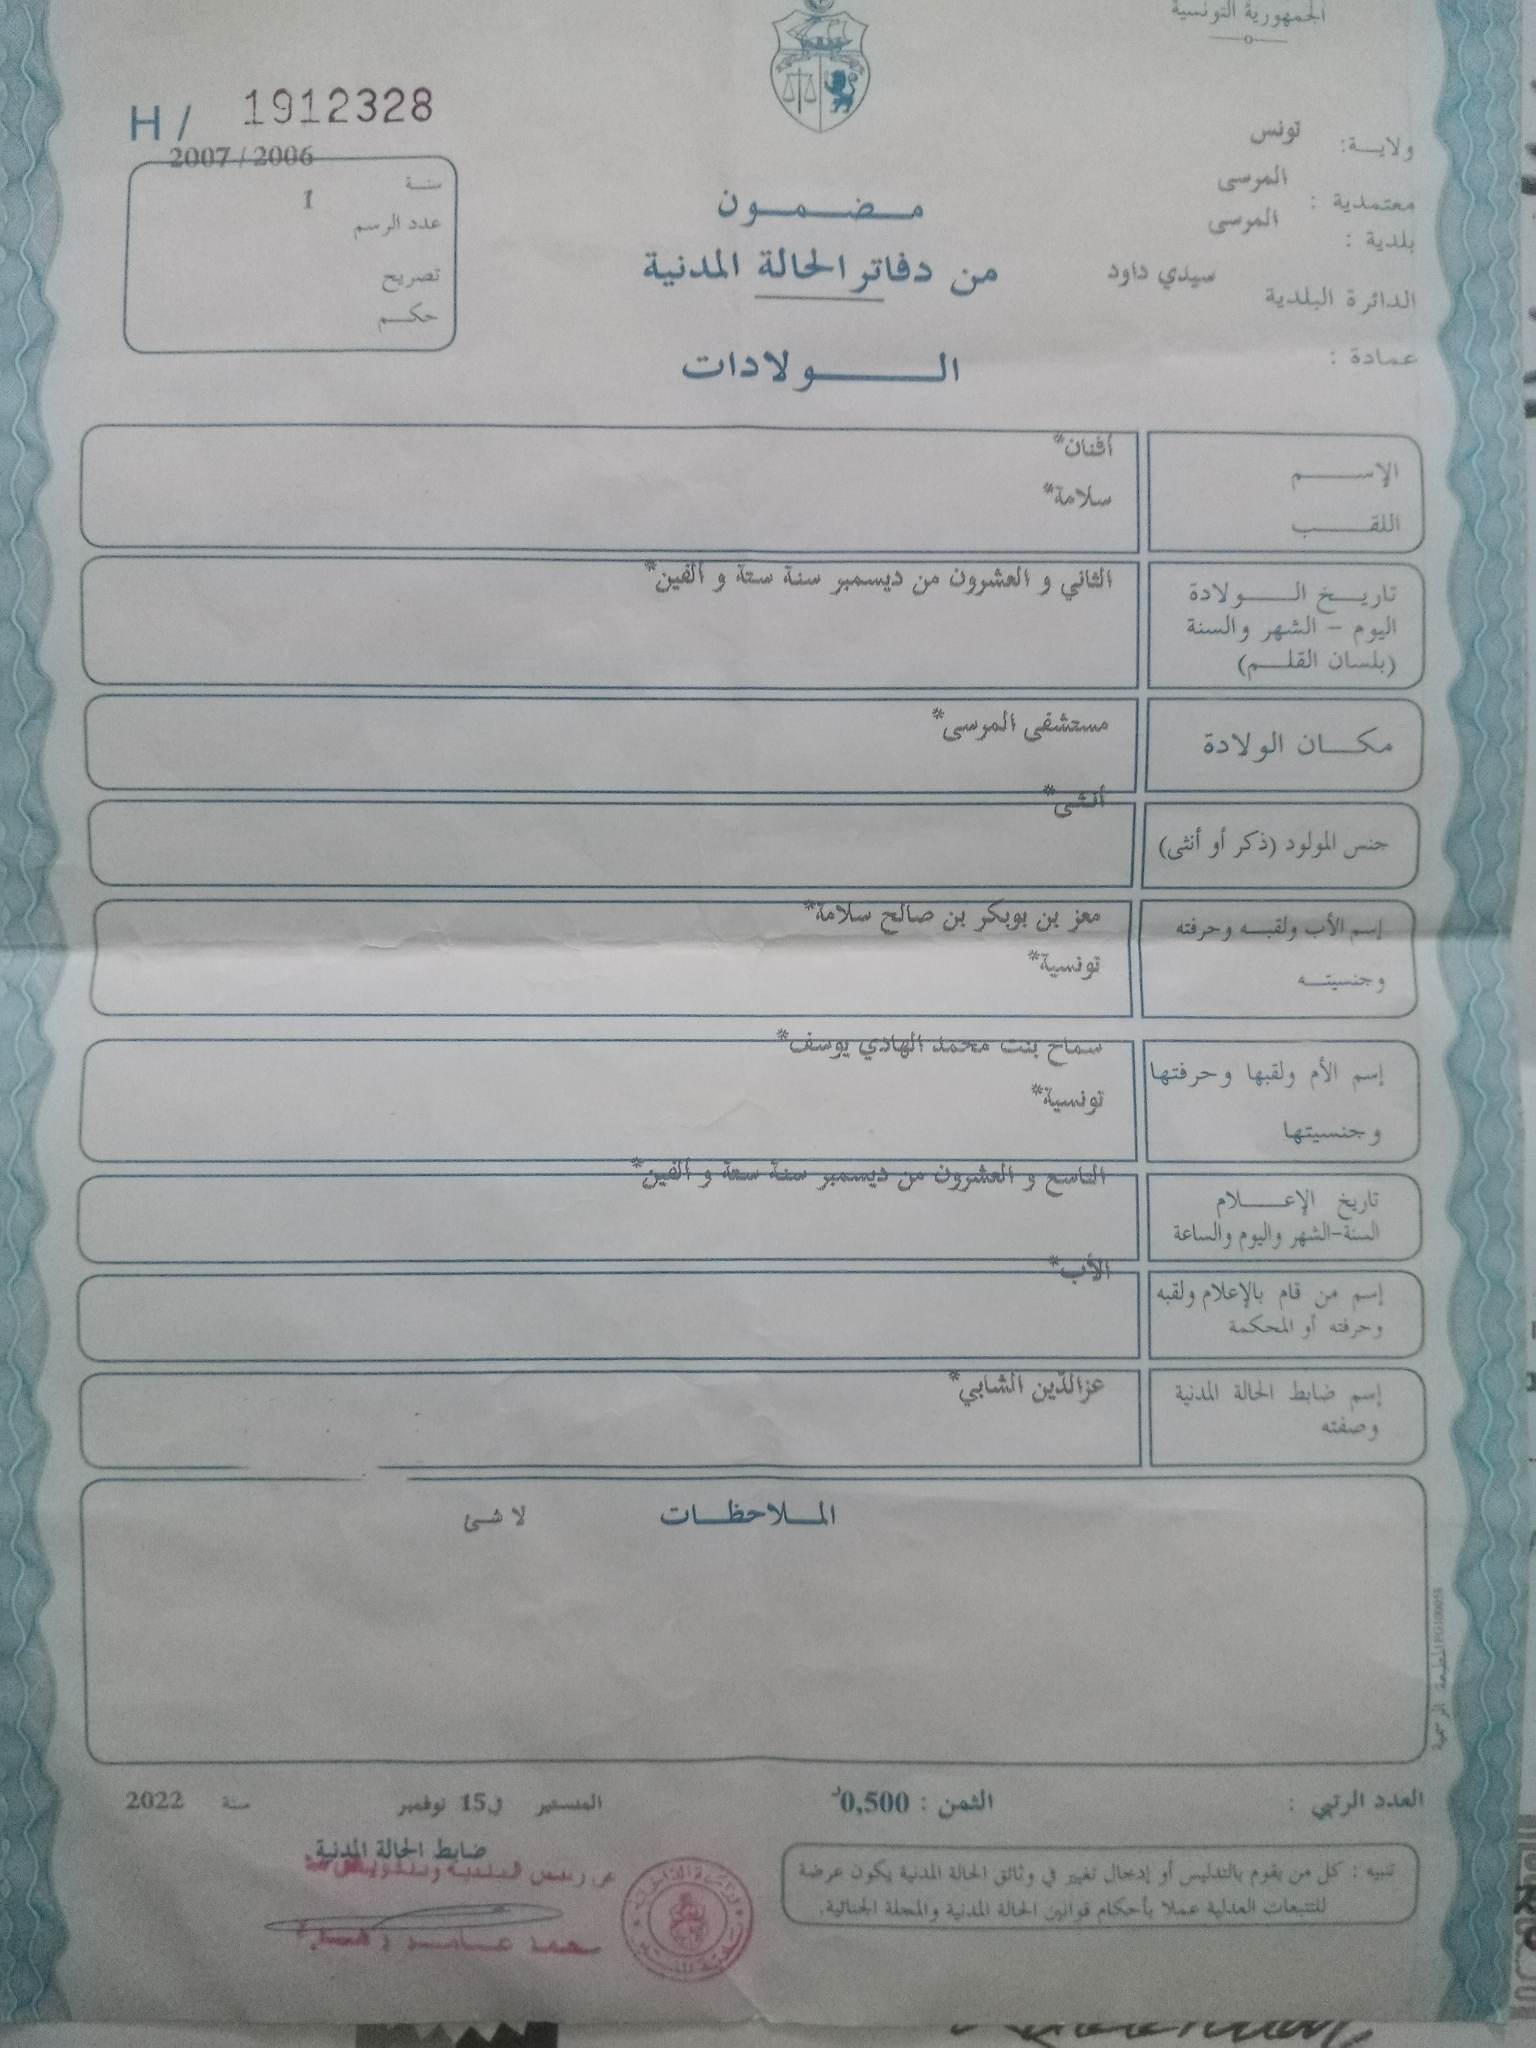 الجمهورية التونسية
H / 1912328
ولاية: تونس
معتمدية : المرسى
بلدية : المرسى
الدائرة البلدية سيدي داود
عمادة :
2007 / 2006
سنة
عدد الرسم 1
تصريح
حكم
مضمون
من دفاتر الحالة المدنية
الولادات
الإسم أفنان*
اللقب سلامة*
تاريخ الولادة الثاني و العشرون من ديسمبر سنة ستة و ألفين*
اليوم - الشهر والسنة
(بلسان القلم)
مكان الولادة مستشفى المرسى*
جنس المولود (ذكر أو أنثى) أنثى*
إسم الأب ولقبه وحرفته معز بن بوبكر بن صالح سلامة*
وجنسيته تونسية*
إسم الأم ولقبها وحرفتها سماح بنت محمد الهادي يوسف*
وجنسيتها تونسية*
تاريخ الإعلام التاسع و العشرون من ديسمبر سنة ستة و ألفين*
السنة-الشهر واليوم والساعة
إسم من قام بالإعلام ولقبه الأب*
وحرفته أو المحكمة
إسم ضابط الحالة المدنية عزالدّين الشابي*
وصفته
الملاحظات لا شئ
المطبعة الرسمية
العدد الرتبي :
الثمن : 0,500د
المنستير في 15 نوفمبر سنة 2022
ضابط الحالة المدنية
عن رئيس البلدية وبتفويض منه
تنبيه : كل من يقوم بالتدليس أو إدخال تغيير في وثائق الحالة المدنية يكون عرضة
للتتبعات العدلية عملا بأحكام قوانين الحالة المدنية والمجلة الجنائية.